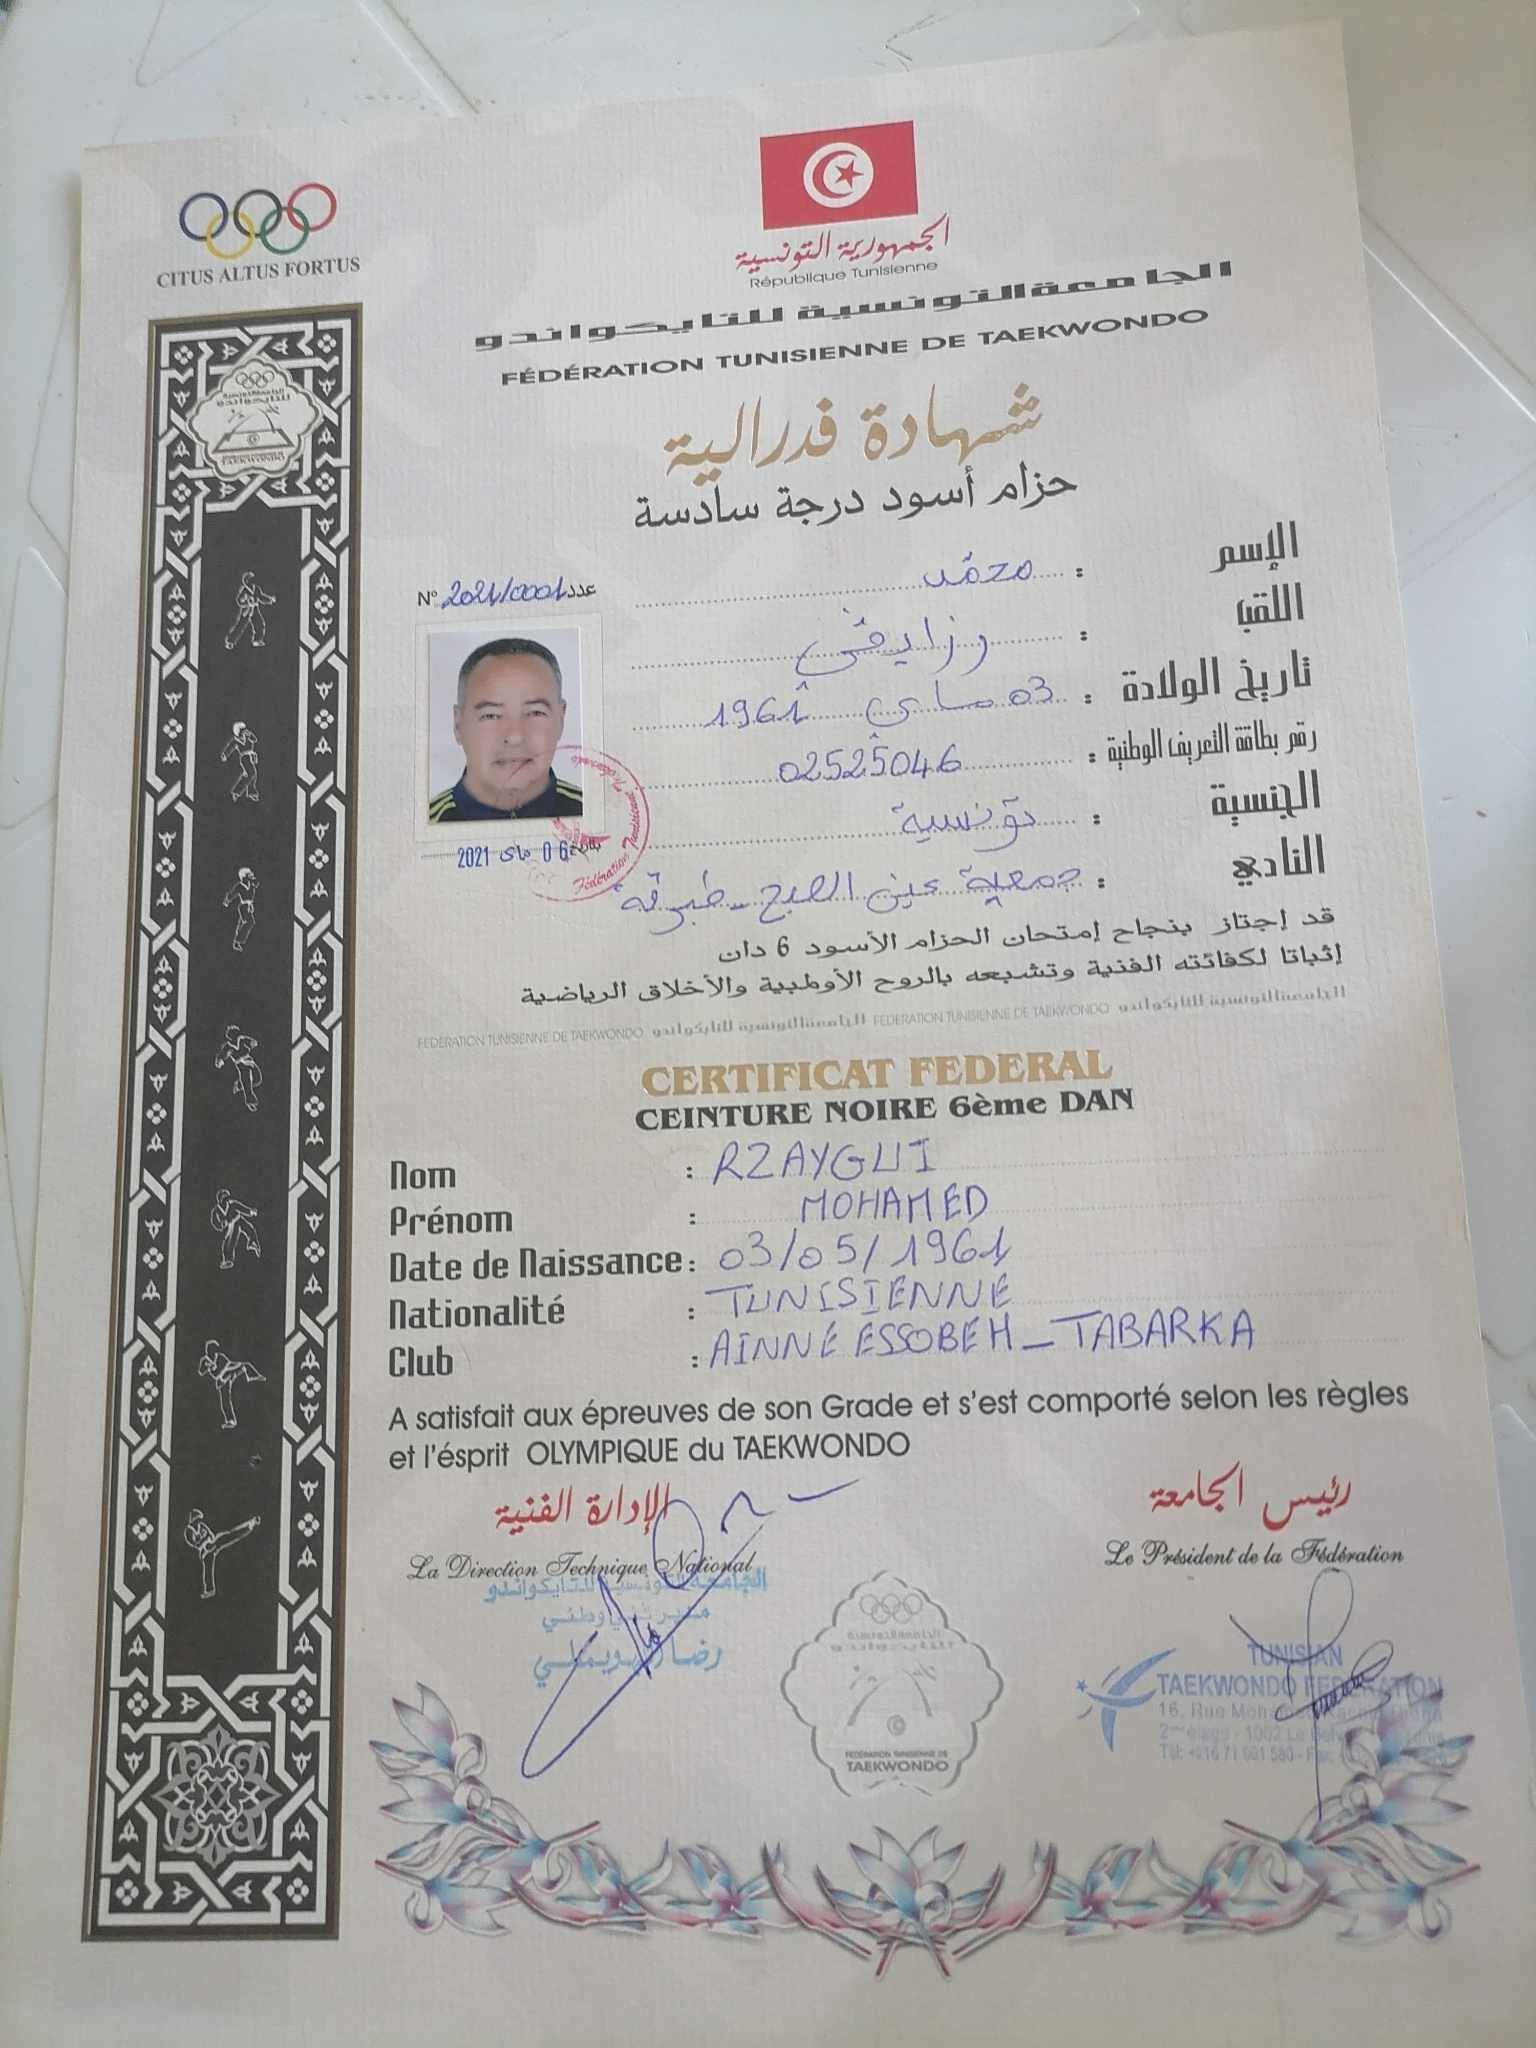 CITUS ALTUS FORTUS
الجمهورية التونسية
République Tunisienne
الجامعة التونسية للتايكواندو
FÉDÉRATION TUNISIENNE DE TAEKWONDO
شهادة فدرالية
حزام أسود درجة سادسة
N° 2021/0001 عدد
الإسم : محمد
اللقب : رزايقي
تاريخ الولادة : 03 ماي 1961
رقم بطاقة التعريف الوطنية : 02525046
الجنسية : تونسية
06 ماي 2021
النادي : جمعية عين الصبح - طبرقة
قد إجتاز بنجاح إمتحان الحزام الأسود 6 دان
إثباتا لكفائته الفنية وتشبعه بالروح الأولمبية والأخلاق الرياضية
FEDERATION TUNISIENNE DE TAEKWONDO الجامعة التونسية للتايكواندو FEDERATION TUNISIENNE DE TAEKWONDO الجامعة التونسية للتايكواندو
CERTIFICAT FEDERAL
CEINTURE NOIRE 6ème DAN
Nom : RZAYGUI
Prénom : MOHAMED
Date de Naissance : 03/05/1961
Nationalité : TUNISIENNE
Club : AINNE ESSOBEH - TABARKA
A satisfait aux épreuves de son Grade et s'est comporté selon les règles
et l'ésprit OLYMPIQUE du TAEKWONDO
الإدارة الفنية
La Direction Technique National
الجامعة التونسية للتايكواندو
مدير فني وطني
رضا
رئيس الجامعة
Le Président de la Fédération
TUNISIAN
TAEKWONDO FEDERATION
16, Rue Mohamed
2ème étage - 1002 Le
Tél: +216 71
FEDERATION TUNISIENNE DE
TAEKWONDO